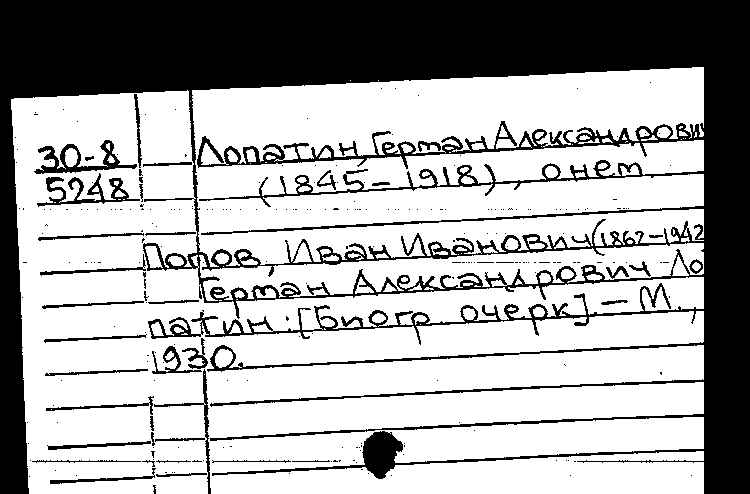 30-8
5248
Лопатин, Герман Александрович
(1845-1918), о нем.
Попов, Иван Иванович (1862-1942
Герман Александрович Ло
патин: [Биогр. очерк]. - М.,
1930.